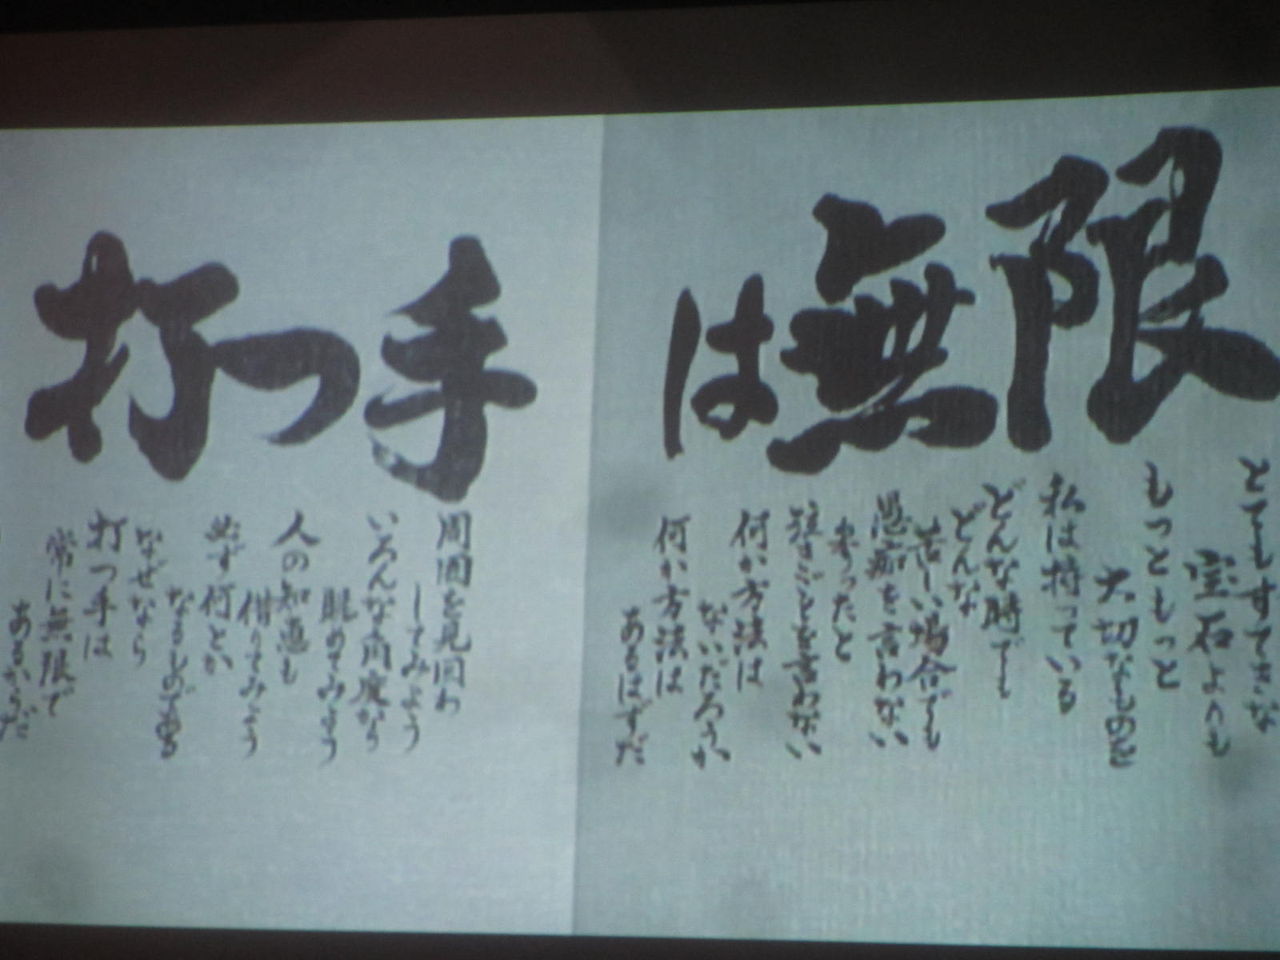 打つ手は無限
とてもすてきな
宝石よりも
もっともっと
大切なものを
私は持っている
どんな時でも
どんな
苦しい場合でも
愚痴を言わない
参ったと
泣きごとを言わない
何か方法は
ないだろうか
何か方法は
あるはずだ
周囲を見回わ
してみよう
いろんな角度から
眺めてみよう
人の知恵も
借りてみよう
必ず何とか
なるものである
なぜなら
打つ手は
常に無限で
あるからだ